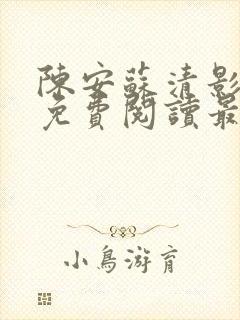 陳安蘇清影
免費閱讀最
小鳥游育